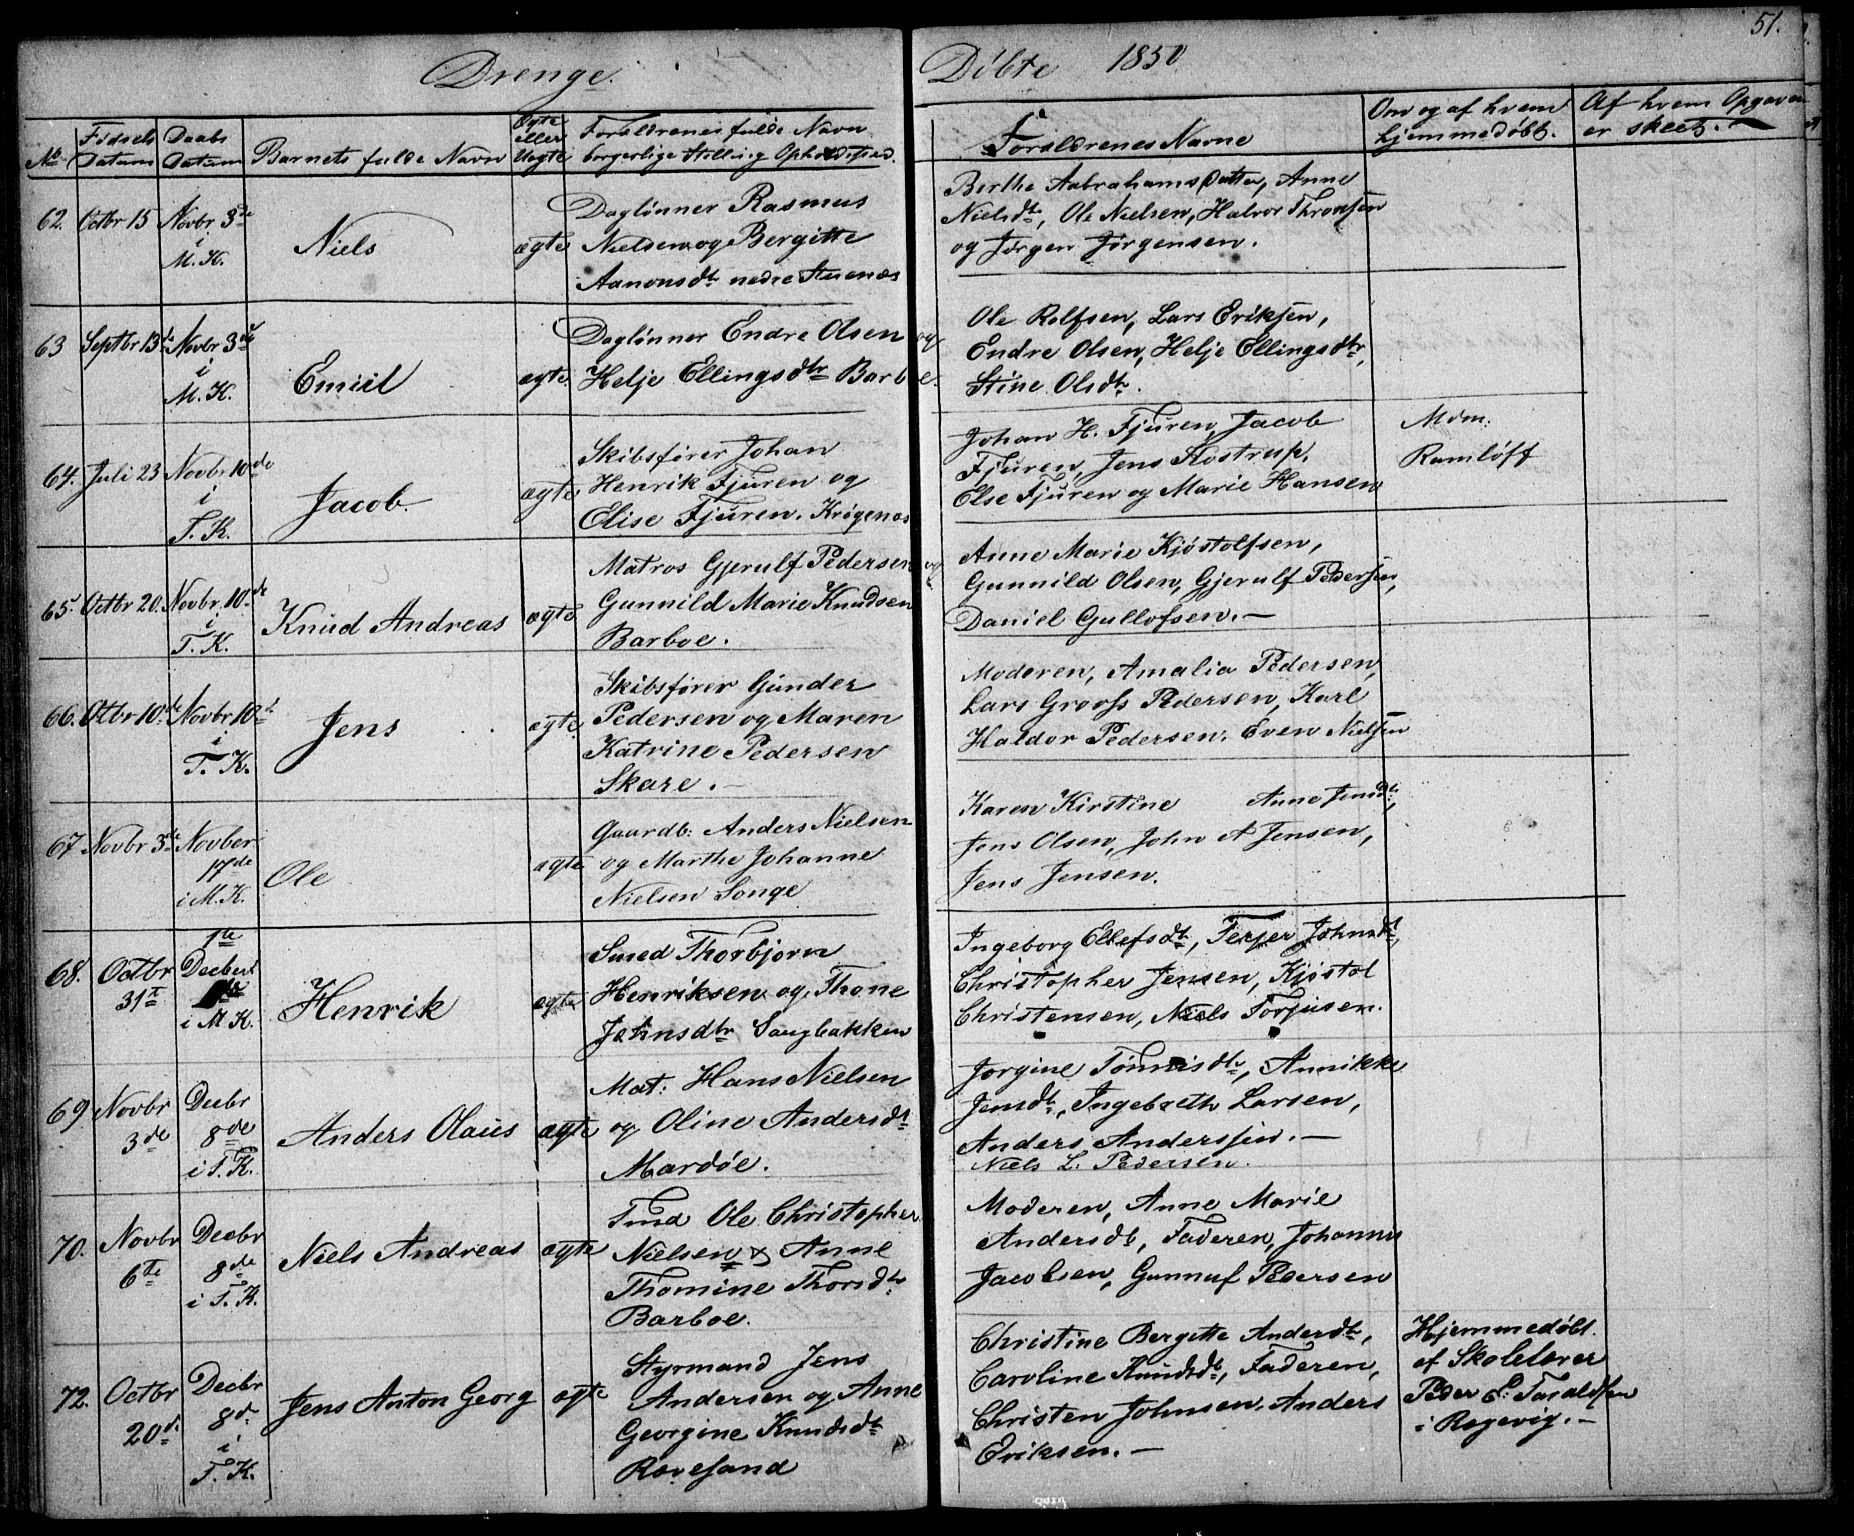 51.
Drenge. Döbte 1850
No Fødsels Datum Daabs Datum Barnets fulde Navn Ægte eller Uægte Forældrenes fulde Navn borgerlige Stilling Opholdssted.
Forældrenes Navne Om og af hvem hjemmedøbt. Af hvem Opgaven er skeet.
62. Octbr 15 Novbr 3de i M. K. Niels ægte
Daglönner Rasmus
Nielsen og Bergitte
Aanonsdtr nedre
Berthe Aabrahams Datter, Anne
Nielsdtr, Ole Nielsen, Halvor Thronsen
og Jörgen Jörgensen.
63 Septbr 13de Novbr 3de i M. K. Emiil ægte
Daglönner Endre Olsen og
Helje Ellingsdtr Barboe.
Ole Rolfsen, Lars Eriksen,
Endre Olsen, Helje Ellingsdtr,
Stine Olsdtr.
64. Juli 23 Novbr 10de i T. K. Jacob. ægte
Skibsfører Johan
Henrik Fjuren og
Elise Fjuren. Krögenes
Johan H. Fjuren, Jacob
Fjuren, Jens Kostrup,
Else Fjuren og Marie Hansen
Mdm:
Ramløff
65. Octbr 20. Novbr. 10de i T. K. Knud Andreas ægte
Matros Gjerulf Pedersen og
Gunnild Marie Knudsen
Barboe.
Anne Marie Kjöstolfsen,
Gunnild Olsen, Gjerulf Pedersen,
Daniel Gullofsen. —
66. Octbr 10de Novbr 10de i T. K. Jens ægte
Skibsfører Gunder
Pedersen og Maren
Katrine Pedersen
Skare. —
Moderen, Amalia Pedersen,
Lars Grooss Pedersen, Karl
Haldor Pedersen. Even Nielsen
67 Novbr 3de Novber 17de i M. K. Ole ægte
Gaardb: Anders Nielsen
og Marthe Johanne
Nielsen Songe
Karen Kirstine Anne Jensdtr,
Jens Olsen, John A Jensen,
Jens Jensen.
68. Octbr 31te 1te Decber i M K. Henrik ægte
Smed Thorbjörn
Henriksen og Thone
Johnsdtr Saugbakken
Ingeborg Ellefsdtr, Terjer Johnsdtr,
Christopher Jensen, Kjöstol
Christensen, Niels Torjusen.
69 Novbr 3de Decbr 8de i T. K. Anders Olaus ægte
Mat: Hans Nielsen
og Oline Andersdtr
Mardöe.
Jorgine Tönnisdtr, Annikke
Jensdtr, Ingebreth Larsen,
Anders Anderssen. —
Niels L. Pedersen.
70. Novbr 6te Decbr 8de i T. K. Niels Andreas ægte
Tmd Ole Christopher
Nielsen & Anne
Thomine Thorsdtr
Barboe.
Moderen, Anne Marie
Andersdtr, Faderen, Johannes
Jacobsen, Gunnuf Pedersen
72. Octbr 20de Decbr 8de i T. K. Jens Anton Georg ægte
Styrmand Jens
Andersen og Anne
Georgine Knudsdtr
Rævesand
Christine Bergitte Andersdtr,
Caroline Knudsdtr, Faderen,
Christen Johnsen, Anders
Eriksen. —
Hjemmedöbt
af Skolelærer
Peder S. Taraldsen
i Rægevig. —